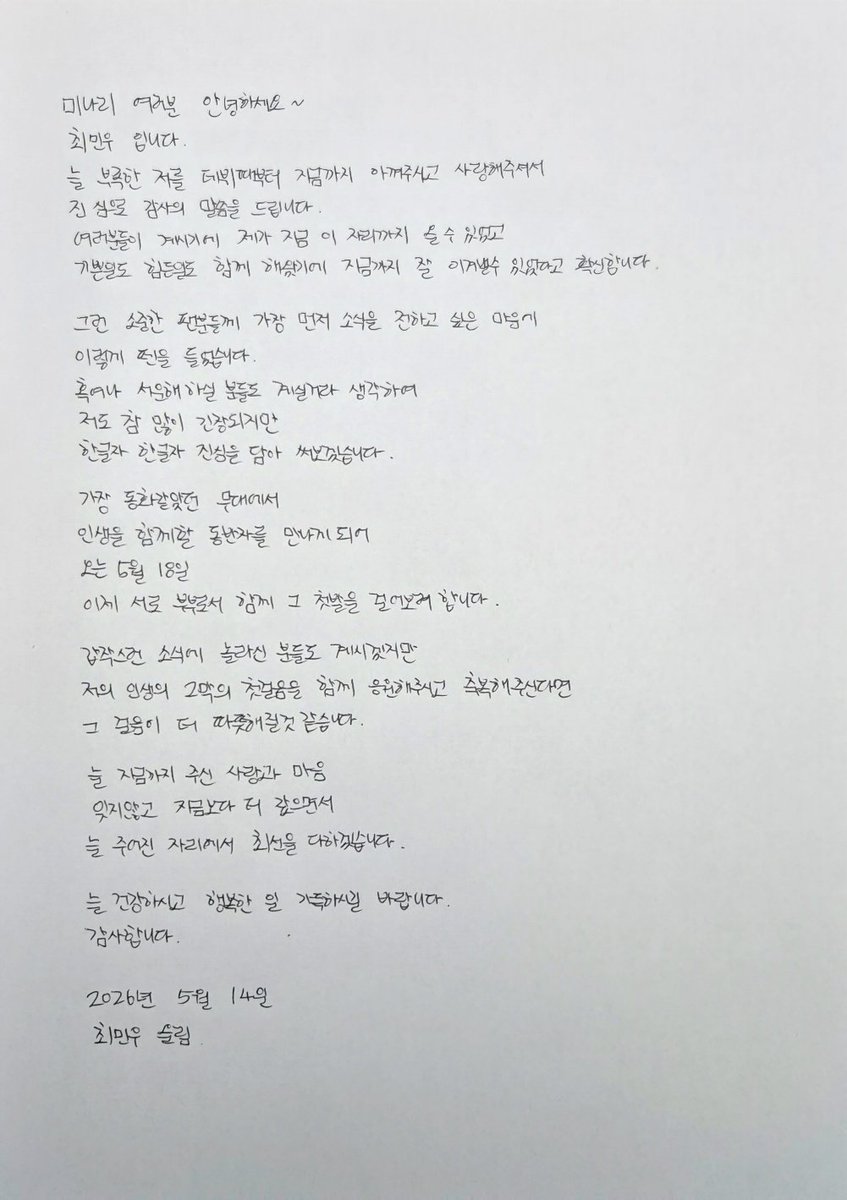 미나리 여러분 안녕하세요~
최민우 입니다.
늘 부족한 저를 데뷔때부터 지금까지 아껴주시고 사랑해주셔서
진심으로 감사의 말씀을 드립니다.
여러분들이 계시기에 제가 지금 이 자리까지 올수 있었고
기쁜일도 힘든일도 함께 해왔기에 지금까지 잘 이겨낼수 있었다고 확신합니다.
그런 소중한 팬분들께 가장 먼저 소식을 전하고 싶은 마음에
이렇게 펜을 들었습니다.
혹여나 서운해하실 분들도 계실거라 생각하여
저도 참 많이 긴장되지만
한글자 한글자 진심을 담아 써보겠습니다.
가장 동화같았던 무대에서
인생을 함께할 동반자를 만나게 되어
오는 5월 18일
이제 서로 부부로서 함께 그 첫발을 걸어보려 합니다.
갑작스런 소식에 놀라신 분들도 계시겠지만
저의 인생의 2막의 첫걸음을 함께 응원해주시고 축복해주신다면
그 걸음이 더 따뜻해질것 같습니다.
늘 지금까지 주신 사랑과 마음
잊지않고 지금보다 더 갚으면서
늘 주어진 자리에서 최선을 다하겠습니다.
늘 건강하시고 행복한 일 가득하시길 바랍니다.
감사합니다.
2026년 5월 14일
최민우 올림.